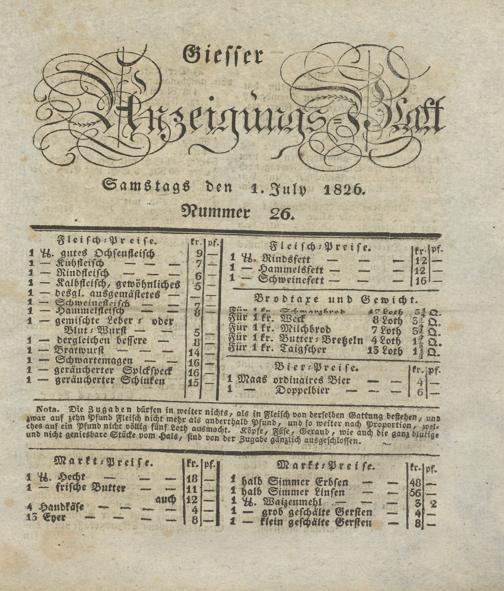 Giesser
Anzeigungs-Blatt
Samstags den 1. July 1826.
Nummer 26.
Fleisch-Preise. kr. pf.
1 ℔. gutes Ochsenfleisch 9 —
1 — Kuhfleisch — — 7 —
1 — Rindfleisch — — 6 —
1 — Kalbfleisch, gewöhnliches 5 —
1 — desgl. ausgemästetes —
1 — Schweinefleisch — — 7
1 — Hammelfleisch — — 8
1 — gemischte Leber- oder
Blut-Wurst 5 —
1 — dergleichen bessere — 8 —
1 — Bratwurst — — 14 —
1 — Schwartemagen — — 16 —
1 — geräucherter Speckspeck 16 —
1 — geräucherter Schinken 15 —
Fleisch-Preise. kr. pf.
1 ℔. Rindsfett — — — 12 —
1 — Hammelsfett — — 12 —
1 — Schweinefett — — 16 —
Brodtaxe und Gewicht.
Für 1 kr. Schwarzbrod Loth
Für 1 kr. Weck 8 Loth
Für 1 kr. Milchbrod 7 Loth
Für 1 kr. Butter-Bretzeln 4 Loth
Für 1 kr. Taigscher 13 Loth
Bier-Preise.
1 Maas ordinaires Bier — 4 —
1 — Doppelbier — — 6 —
Nota. Die Zugaben dürfen in weiter nichts, als in Fleisch von derselben Gattung bestehen, und
zwar auf zehn Pfund Fleisch nicht mehr als anderthalb Pfund, und so weiter nach Proportion, wel-
ches auf ein Pfund nicht völlig fünf Loth ausmacht. Köpfe, Füße, Geraud, wie auch die ganz blutige
und nicht geniesbare Stücke vom Hals, sind von der Zugabe gänzlich ausgeschlossen.
Markt-Preise. kr. pf.
1 ℔. Hecht — — — 18 —
1 — frische Butter — — 11 —
auch 12 —
4 Handkäse — — — 4 —
13 Eyer — — — 8 —
Markt-Preise. kr. pf.
1 halb Simmer Erbsen — 48 —
1 halb Simmer Linsen — 56 —
1 ℔. Waizenmehl — — 3 2
1 — grob geschälte Gersten 4 —
1 — klein geschälte Gersten 8 —